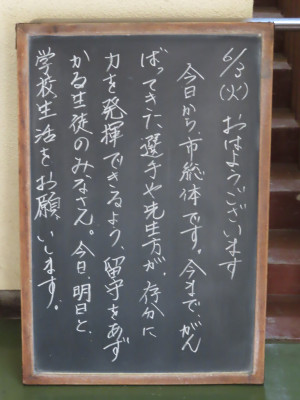 6/3(火) おはようございます
今日から、市総体です。今まで、がん
ばってきた選手や先生方が、存分に
力を発揮できるよう、留守をあず
かる生徒のみなさん。今日、明日と、
学校生活をお願いします。